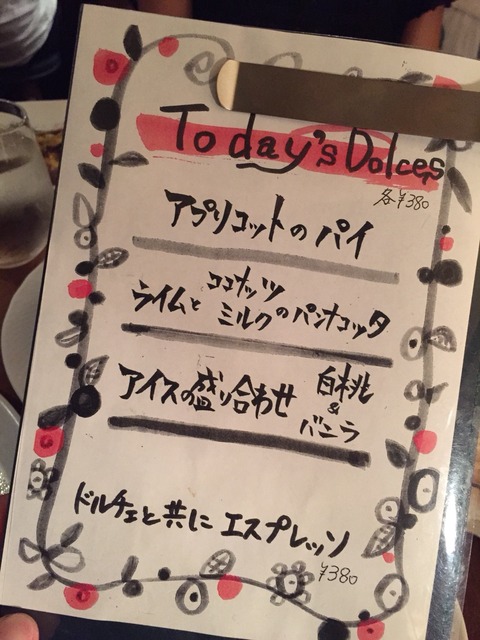 Today's Dolces
各¥380
アプリコットのパイ
ライムとココナッツミルクのパンナコッタ
アイスの盛り合わせ 白桃&バニラ
ドルチェと共に エスプレッソ
¥380